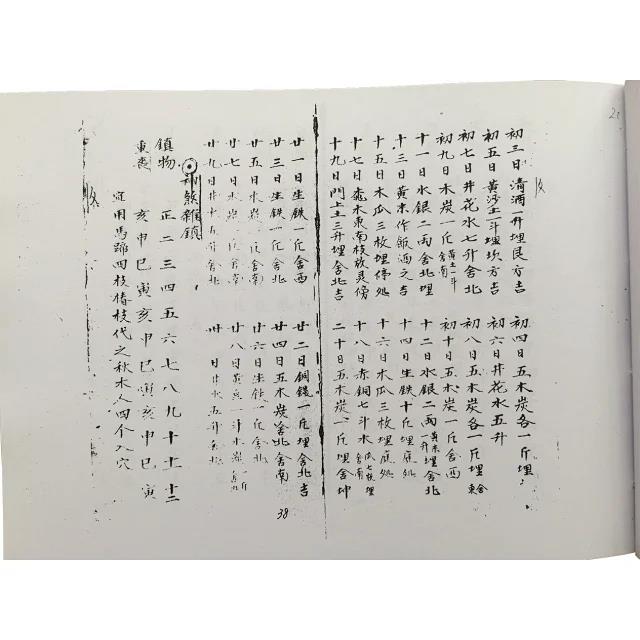 初三日清酒一升埋艮方吉
初四日五木炭各一斤埋
初五日黄沙土一斗埋坎方吉
初六日井花水五升
初七日井花水七升舍北
初八日五木炭各一斤埋舍東
初九日木炭一斤黄土一斗舍南
初十日五木炭一斤舍西
十一日水銀二兩舍北埋
十二日水銀二兩黄米一升埋舍北
十三日黄米作飯酒之吉
十四日生鉄十斤埋庭処
十五日木瓜三枚埋停処
十六日木瓜三枚埋庭処
十七日桃木東南枝放灵傍
十八日赤銅七斗水瓜七枚埋舍南
十九日門上土三升埋舍北吉
二十日五木炭一斤埋舍坤
廿一日生鉄一斤舍西
廿二日銅鏡一斤埋舍北吉
廿三日生鉄一斤舍北
廿四日五木炭舍北舍南
廿五日木炭一斤舍南
廿六日生鉄一斤舍北
廿七日水炭一斤舍南
廿八日黄豆一斗水銀一斤
廿九日井水五升舍北
卅日井水五升
雜鎮
鎮物 正二三四五六七八九十十一十二
東喪 亥申巳寅亥申巳寅亥申巳寅
宜用馬蹄四枝椿枝代之秋木人四个入穴
38